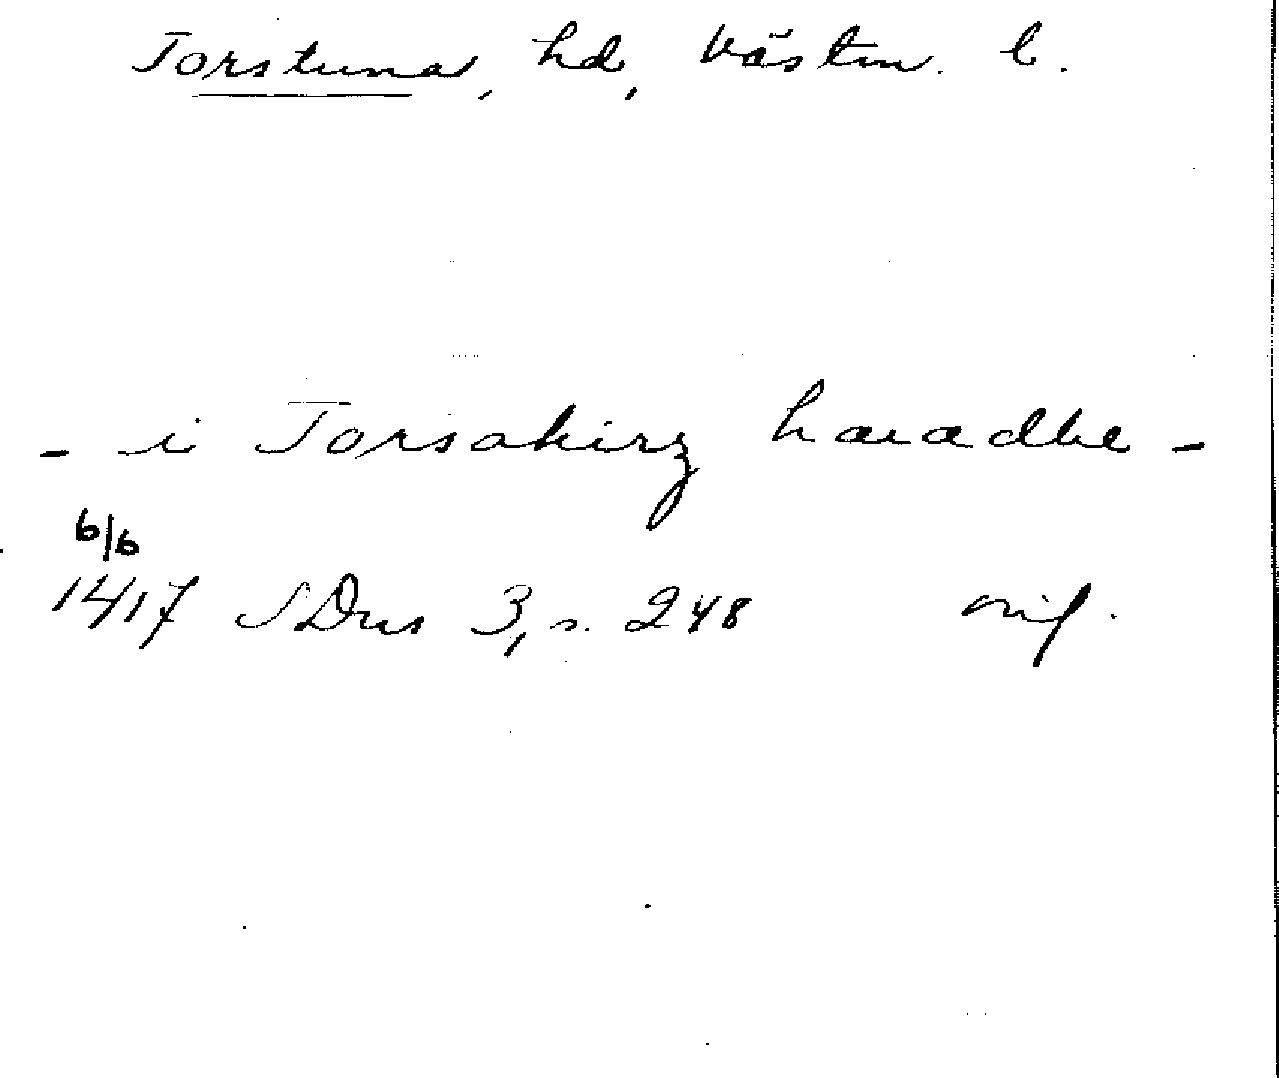 Torstuna, hd, Västm. l.
- i Torsakirz haradhe -
6/6
1417 SDns 3, s. 248 orig.